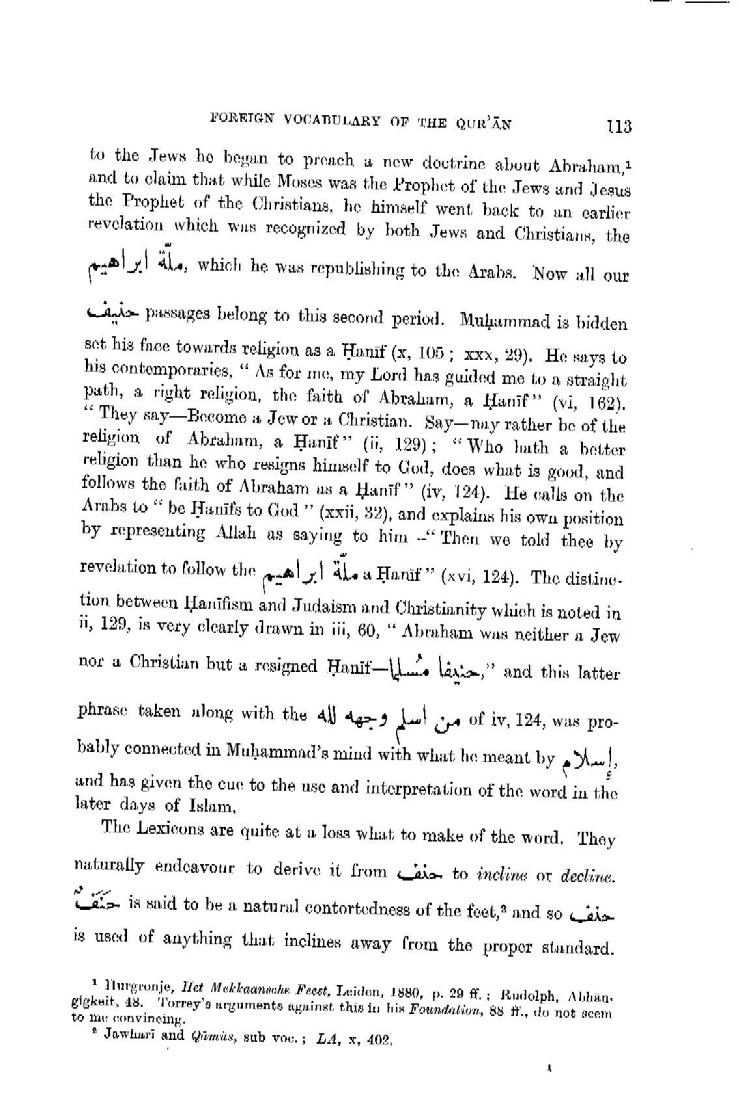 FOREIGN VOCABULARY OF THE QUR'ĀN 113
to the Jews he began to preach a new doctrine about Abraham,¹
and to claim that while Moses was the Prophet of the Jews and Jesus
the Prophet of the Christians, he himself went back to an earlier
revelation which was recognized by both Jews and Christians, the
ملّة ابراهيم, which he was republishing to the Arabs. Now all our
حنيف passages belong to this second period. Muḥammad is bidden
set his face towards religion as a Ḥanīf (x, 105; xxx, 29). He says to
his contemporaries, “ As for me, my Lord has guided me to a straight
path, a right religion, the faith of Abraham, a Ḥanīf ” (vi, 162).
“ They say—Become a Jew or a Christian. Say—nay rather be of the
religion of Abraham, a Ḥanīf ” (ii, 129); “ Who hath a better
religion than he who resigns himself to God, does what is good, and
follows the faith of Abraham as a Ḥanīf ” (iv, 124). He calls on the
Arabs to “ be Ḥanīfs to God ” (xxii, 32), and explains his own position
by representing Allah as saying to him —“ Then we told thee by
revelation to follow the ملّة ابراهيم a Ḥanīf ” (xvi, 124). The distinc-
tion between Ḥanīfism and Judaism and Christianity which is noted in
ii, 129, is very clearly drawn in iii, 60, “ Abraham was neither a Jew
nor a Christian but a resigned Ḥanīf—حنيفا مُسلما,” and this latter
phrase taken along with the من أسلم وجهه لله of iv, 124, was pro-
bably connected in Muḥammad's mind with what he meant by إسلام,
and has given the cue to the use and interpretation of the word in the
later days of Islam.
The Lexicons are quite at a loss what to make of the word. They
naturally endeavour to derive it from حنف to incline or decline.
حَنَفٌ is said to be a natural contortedness of the feet,² and so حنف
is used of anything that inclines away from the proper standard.
¹ Hurgronje, Het Mekkaansche Feest, Leiden, 1880, p. 29 ff.; Rudolph, Abhän-
gigkeit, 48. Torrey's arguments against this in his Foundation, 88 ff., do not seem
to me convincing.
² Jawharī and Qāmūs, sub voc.; LA, x, 402.